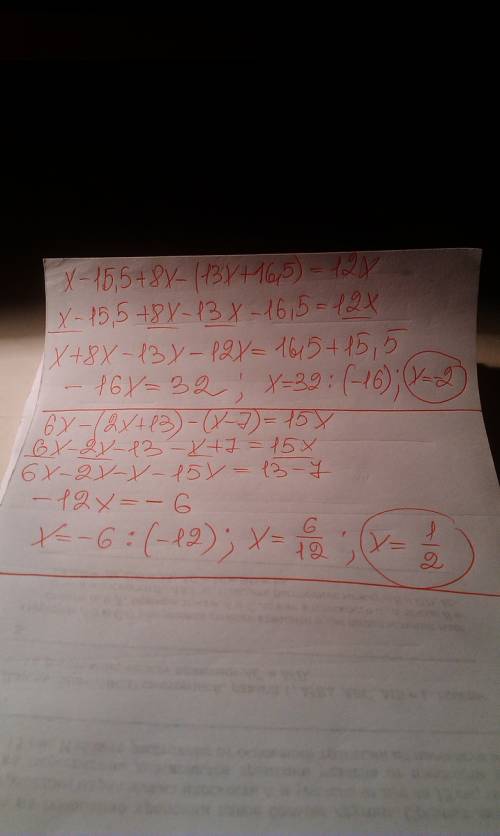 x-15,5+8x-(13x+16,5)=12x
x-15,5+8x-13x-16,5=12x
x+8x-13x-12x=16,5+15,5
-16x=32; x=32:(-16); x=-2
6x-(2x+13)-(x-7)=15x
6x-2x-13-x+7=15x
6x-2x-x-15x=13-7
-12x=-6
x=-6:(-12); x=6/12; x=1/2